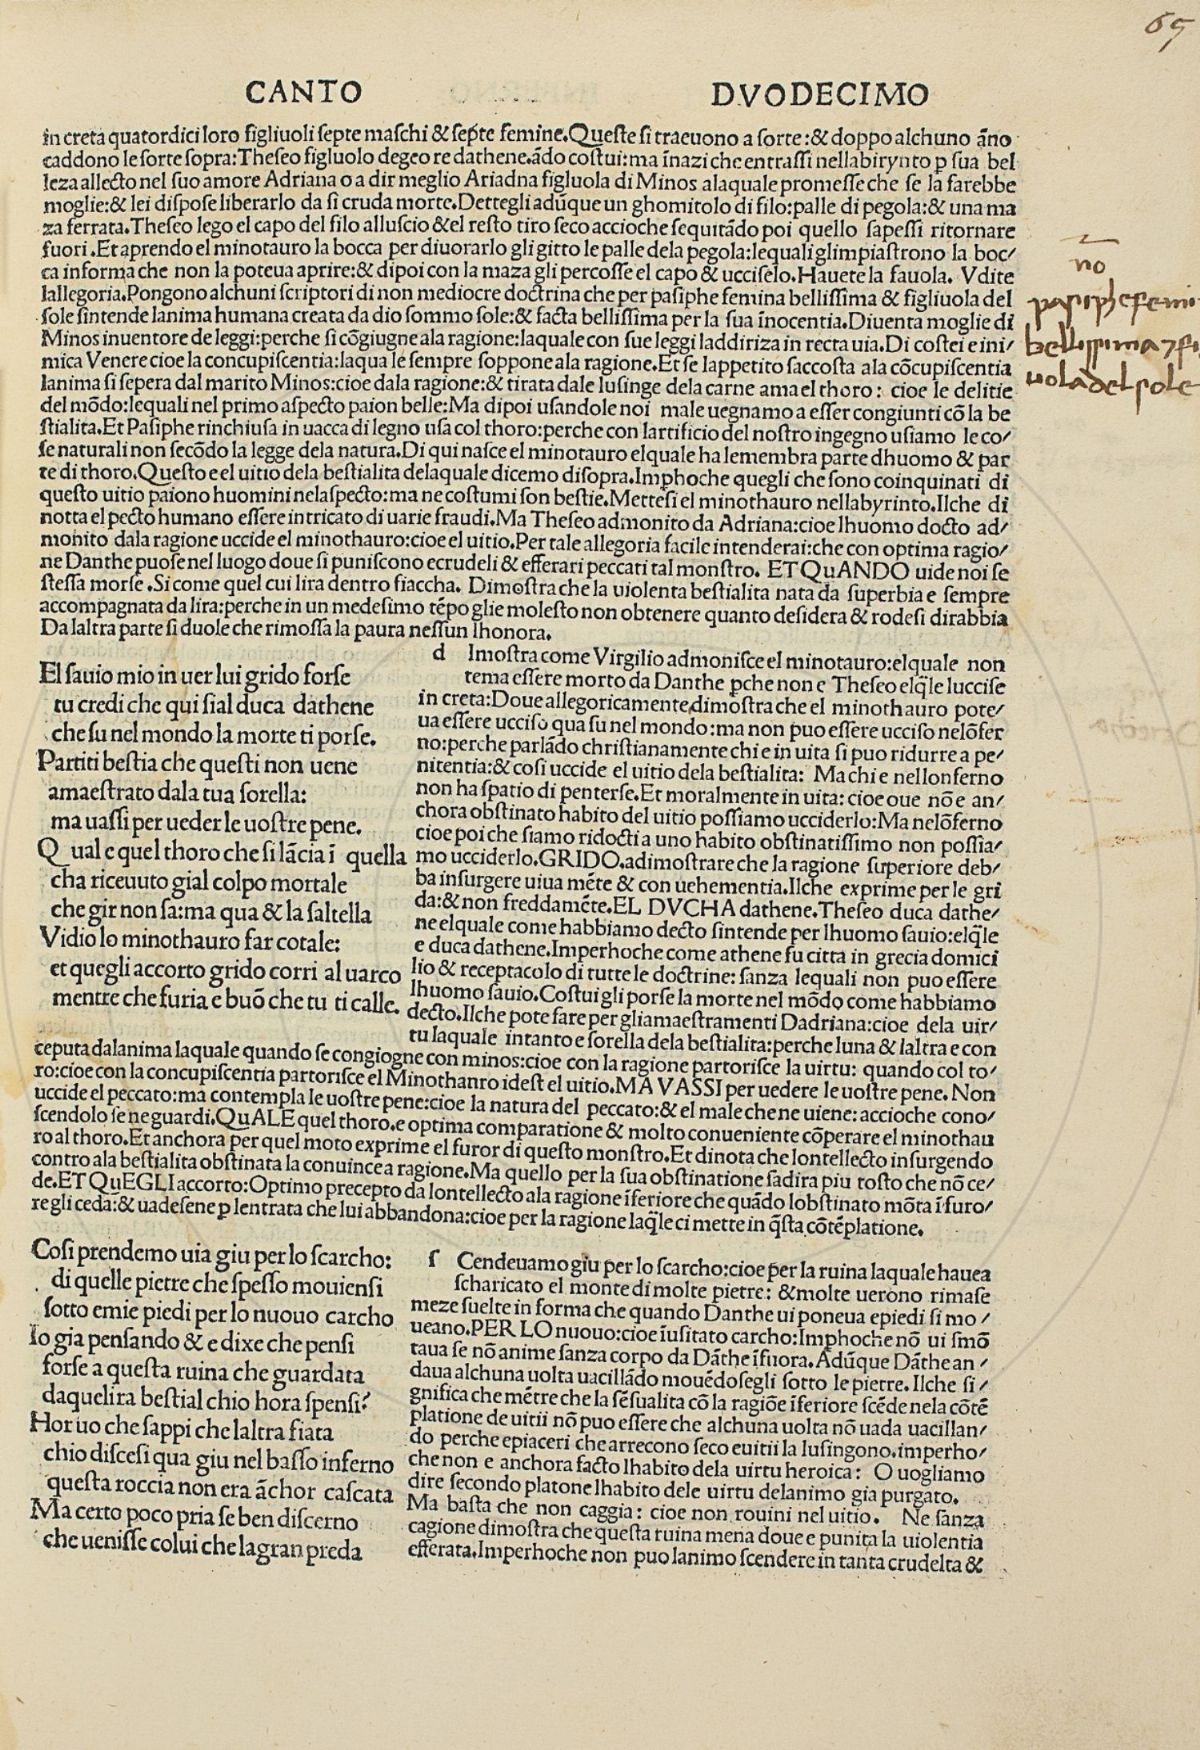 65
CANTO DVODECIMO
in creta quatordici loro figliuoli septe maschi & septe femine.Queste si traeuono a sorte:& doppo alchuno āno
caddono le sorte sopra:Theseo figluolo degeo re dathene.ādo costui:ma īnazi che entrassi nellabirynto p sua bel
leza allecto nel suo amore Adriana o a dir meglio Ariadna figluola di Minos alaquale promesse che se la farebbe
moglie:& lei dispose liberarlo da si cruda morte.Dettegli adūque un ghomitolo di filo:palle di pegola:& una ma
za ferrata.Theseo lego el capo del filo alluscio &el resto tiro seco accioche sequitādo poi quello sapessi ritornare
fuori.Et aprendo el minotauro la bocca per diuorarlo gli gitto le palle dela pegola:lequali glimpiastrono la boc/
ca informa che non la poteua aprire:& dipoi con la maza gli percosse el capo & ucciselo.Hauete la fauola. Vdite
lallegoria.Pongono alchuni scriptori di non mediocre doctrina che per pasiphe femina bellissima & figliuola del
sole sintende lanima humana creata da dio sommo sole:& facta bellissima per la sua īnocentia.Diuenta moglie di
Minos inuentore de leggi:perche si cōgiugne ala ragione:laquale con sue leggi laddiriza in recta uia.Di costei e ini/
mica Venere cioe la concupiscentia:laqua le sempre soppone ala ragione.Et se lappetito saccosta ala cōcupiscentia
lanima si sepera dal marito Minos:cioe dala ragione:& tirata dale lusinge dela carne ama el thoro: cioe le delitie
del mōdo:lequali nel primo aspecto paion belle:Ma dipoi usandole noi male uegnamo a esser congiunti cō la be
stialita.Et Pasiphe rinchiusa in uacca di legno usa col thoro:perche con lartificio del nostro ingegno usiamo le co/
se naturali non secōdo la legge dela natura.Di qui nasce el minotauro elquale ha le membra parte dhuomo & par
te di thoro.Questo e el uitio dela bestialita delaquale dicemo disopra.Imphoche quegli che sono coinquinati di
questo uitio paiono huomini nelaspecto:ma ne costumi son bestie.Mettesi el minothauro nellabyrinto.Ilche di
notta el pecto humano essere intricato di uarie fraudi.Ma Theseo admonito da Adriana:cioe lhuomo docto ad/
monito dala ragione uccide el minothauro:cioe el uitio.Per tale allegoria facile intenderai:che con optima ragio/
ne Danthe puose nel luogo doue si puniscono ecrudeli & efferari peccati tal monstro. ET QuANDO uide noi se
stessa morse .Si come quel cui lira dentro fiaccha. Dimostra che la uiolenta bestialita nata da superbia e sempre
accompagnata da lira:perche in un medesimo tēpo glie molesto non obtenere quanto desidera & rodesi dirabbia
Da laltra parte si duole che rimossa la paura nessun lhonora.
no
pasiphe femi
bellissima 7 fi
uola del sole
El sauio mio in uer lui grido forse
tu credi che qui sial duca dathene
che su nel mondo la morte ti porse.
Partiti bestia che questi non uene
amaestrato dala tua sorella:
ma uassi per ueder le uostre pene.
Qual e quel thoro che si lācia ī quella
cha riceuuto gial colpo mortale
che gir non sa:ma qua & la saltella
Vidio lo minothauro far cotale:
et quegli accorto grido corri al uarco
mentre che furia e buō che tu ti calle.
d Imostra come Virgilio admonisce el minotauro:elquale non
tema essere morto da Danthe pche non e Theseo elq̄le luccise
in creta:Doue allegoricamente dimostra che el minothauro pote/
ua essere ucciso qua su nel mondo:ma non puo essere ucciso nelōfer
no:perche parlādo christianamente chi e in uita si puo ridurre a pe/
nitentia:& cosi uccide el uitio dela bestialita: Ma chi e nellonferno
non ha spatio di penterse.Et moralmente in uita: cioe oue nō e an/
chora obstinato habito del uitio possiamo ucciderlo:Ma nelōferno
cioe poi che siamo ridocti a uno habito obstinatissimo non possia/
mo ucciderlo.GRIDO.adimostrare che la ragione superiore deb/
ba insurgere uiua mēte & con uehementia.Ilche exprime per le gri
da:& non freddamēte.EL DVCHA dathene.Theseo duca dathe/
ne elquale come habbiamo decto sintende per lhuomo sauio:elq̄le
e duca dathene.Imperhoche come athene fu citta in grecia domici
lio & receptacolo di tutte le doctrine: sanza lequali non puo essere
lhuomo sauio.Costui gli porse la morte nel mōdo come habbiamo
decto.Ilche pote fare per gliamaestramenti Dadriana:cioe dela uir/
tu laquale intanto e sorella dela bestialita:perche luna & laltra e con
ceputa dalanima laquale quando se congiogne con minos:cioe con la ragione partorisce la uirtu: quando col to/
ro:cioe con la concupiscentia partorisce el Minothanro idest el uitio.MA VASSI per uedere le uostre pene. Non
uccide el peccato:ma contempla le uostre pene:cioe la natura del peccato:& el male che ne uiene: accioche cono/
scendolo se ne guardi.QuALE quel thoro.e optima comparatione & molto conueniente cōperare el minothau
ro al thoro.Et anchora per quel moto exprime el furor di questo monstro.Et dinota che lontellecto insurgendo
contro ala bestialita obstinata la conuince a ragione.Ma quello per la sua obstinatione sadira piu tosto che nō ce/
de.ET QuEGLI accorto:Optimo precepto da lontellecto ala ragione īferiore che quādo lobstinato mōta ī furo/
re gli ceda:& uadesene p lentrata che lui abbandona:cioe per la ragione laq̄le ci mette in q̄sta cōtēplatione.
Cosi prendemo uia giu per lo scarcho:
di quelle pietre che spesso mouiensi
sotto emie piedi per lo nuouo carcho
Io gia pensando & e dixe che pensi
forse a questa ruina che guardata
daquelira bestial chio hora spensi?
Hor uo che sappi che laltra fiata
chio discesi qua giu nel basso inferno
questa roccia non era āchor cascata
Ma certo poco pria se ben discerno
che uenisse colui che la gran preda
s Cendeuamo giu per lo scarcho:cioe per la ruina laquale hauea
scharicato el monte di molte pietre: &molte uerono rimase
meze suelte in forma che quando Danthe ui poneua epiedi si mo/
ueano.PER LO nuouo:cioe īusitato carcho:Imphoche nō ui smō
taua se nō anime sanza corpo da Dāthe īfuora. Adūque Dāthe an/
daua alchuna uolta uacillādo mouēdosegli sotto le pietre. Ilche si/
gnifica che mētre che la sēsualita cō la ragiōe īferiore scēde nela cōtē
platione de uitii nō puo essere che alchuna uolta nō uada uacillan/
do perche epiaceri che arrecono seco euitii la lusingono.imperho/
che non e anchora facto lhabito dela uirtu heroica: O uogliamo
dire secondo platone lhabito dele uirtu delanimo gia purgato.
Ma basta che non caggia: cioe non rouini nel uitio. Ne sanza
cagione dimostra che questa ruina mena doue e punita la uiolentia
efferata.Imperhoche non puo lanimo scendere in tanta crudelta &